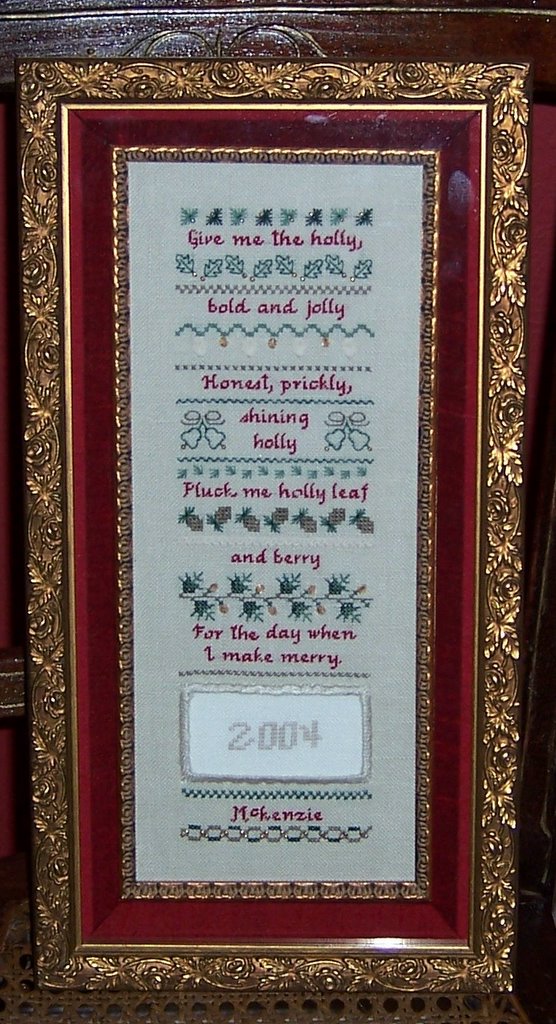 Give me the holly,
bold and jolly
Honest, prickly,
shining
holly
Pluck me holly leaf
and berry
For the day when
I make merry.
2004
McKenzie